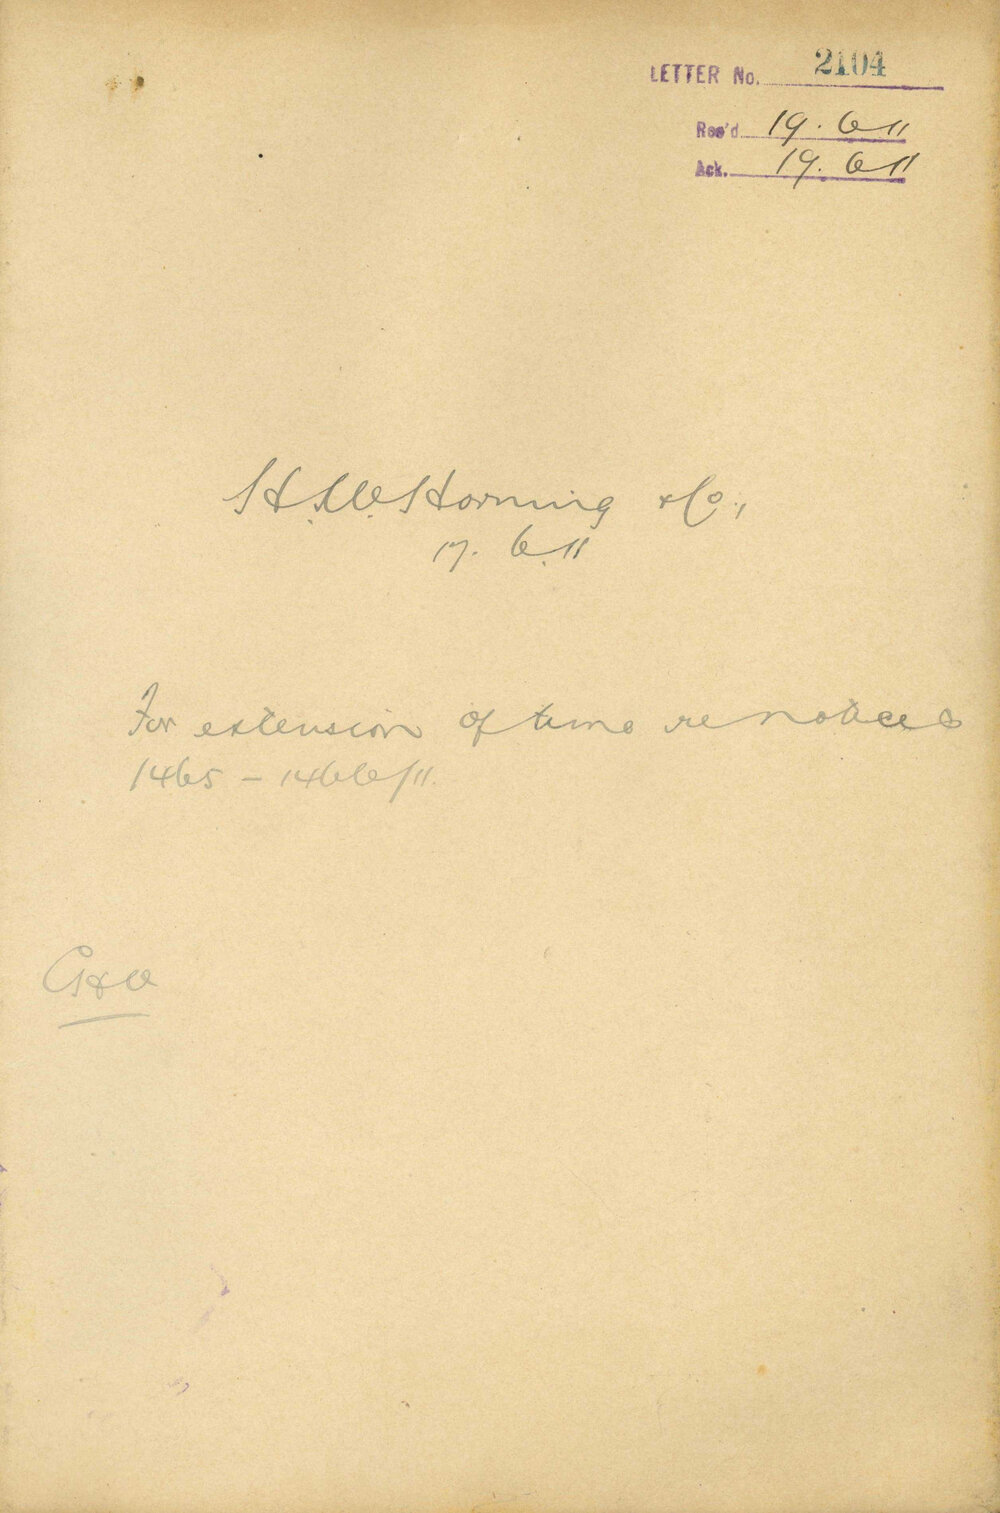 LETTER No. 2104
Rec'd 19. 6 11
Ack. 19. 6 11
H. W. Horning & Co.,
17. 6. 11
For extension of time re notices
1465 – 1466/11.